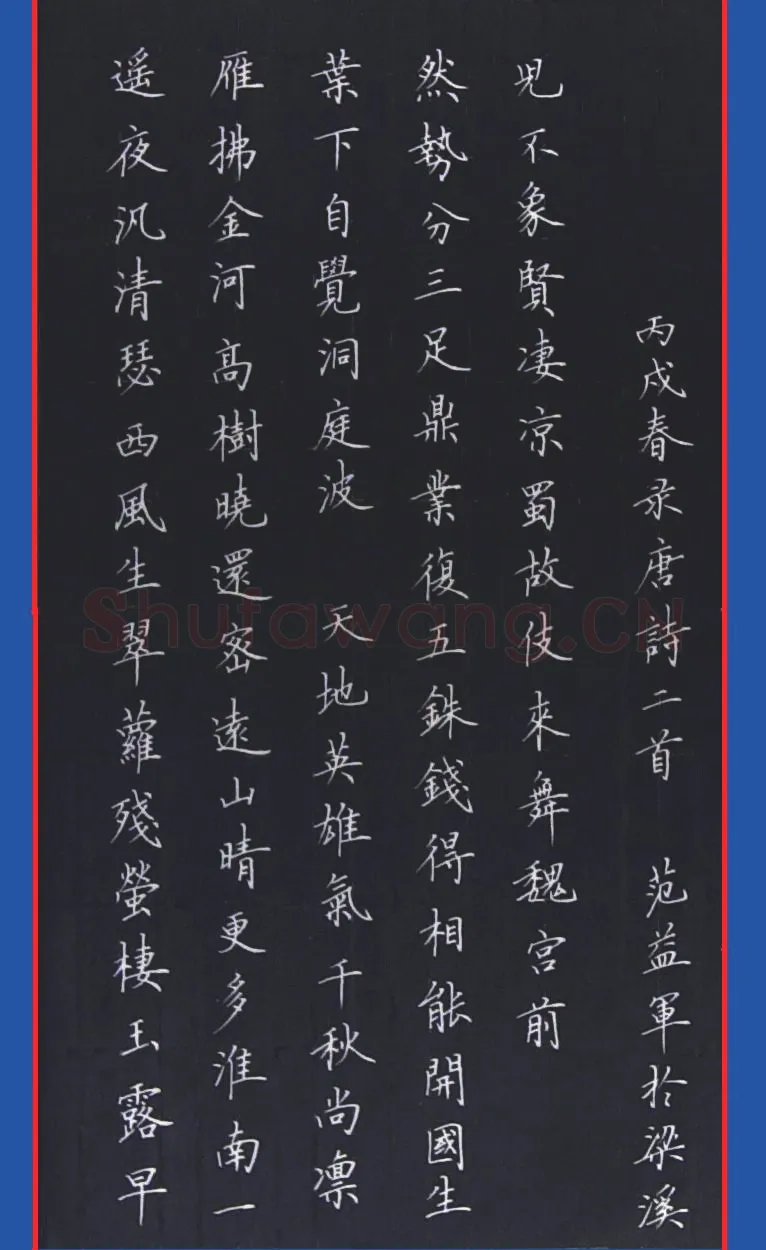 遥夜汎清瑟西風生翠蘿殘螢棲玉露早
雁拂金河高樹曉還密遠山晴更多淮南一
葉下自覺洞庭波 天地英雄氣千秋尚凛
然勢分三足鼎業復五銖錢得相能開國生
児不象賢凄凉蜀故伎來舞魏宫前
丙戌春录唐詩二首 范益軍於梁溪
Shufawang.CN